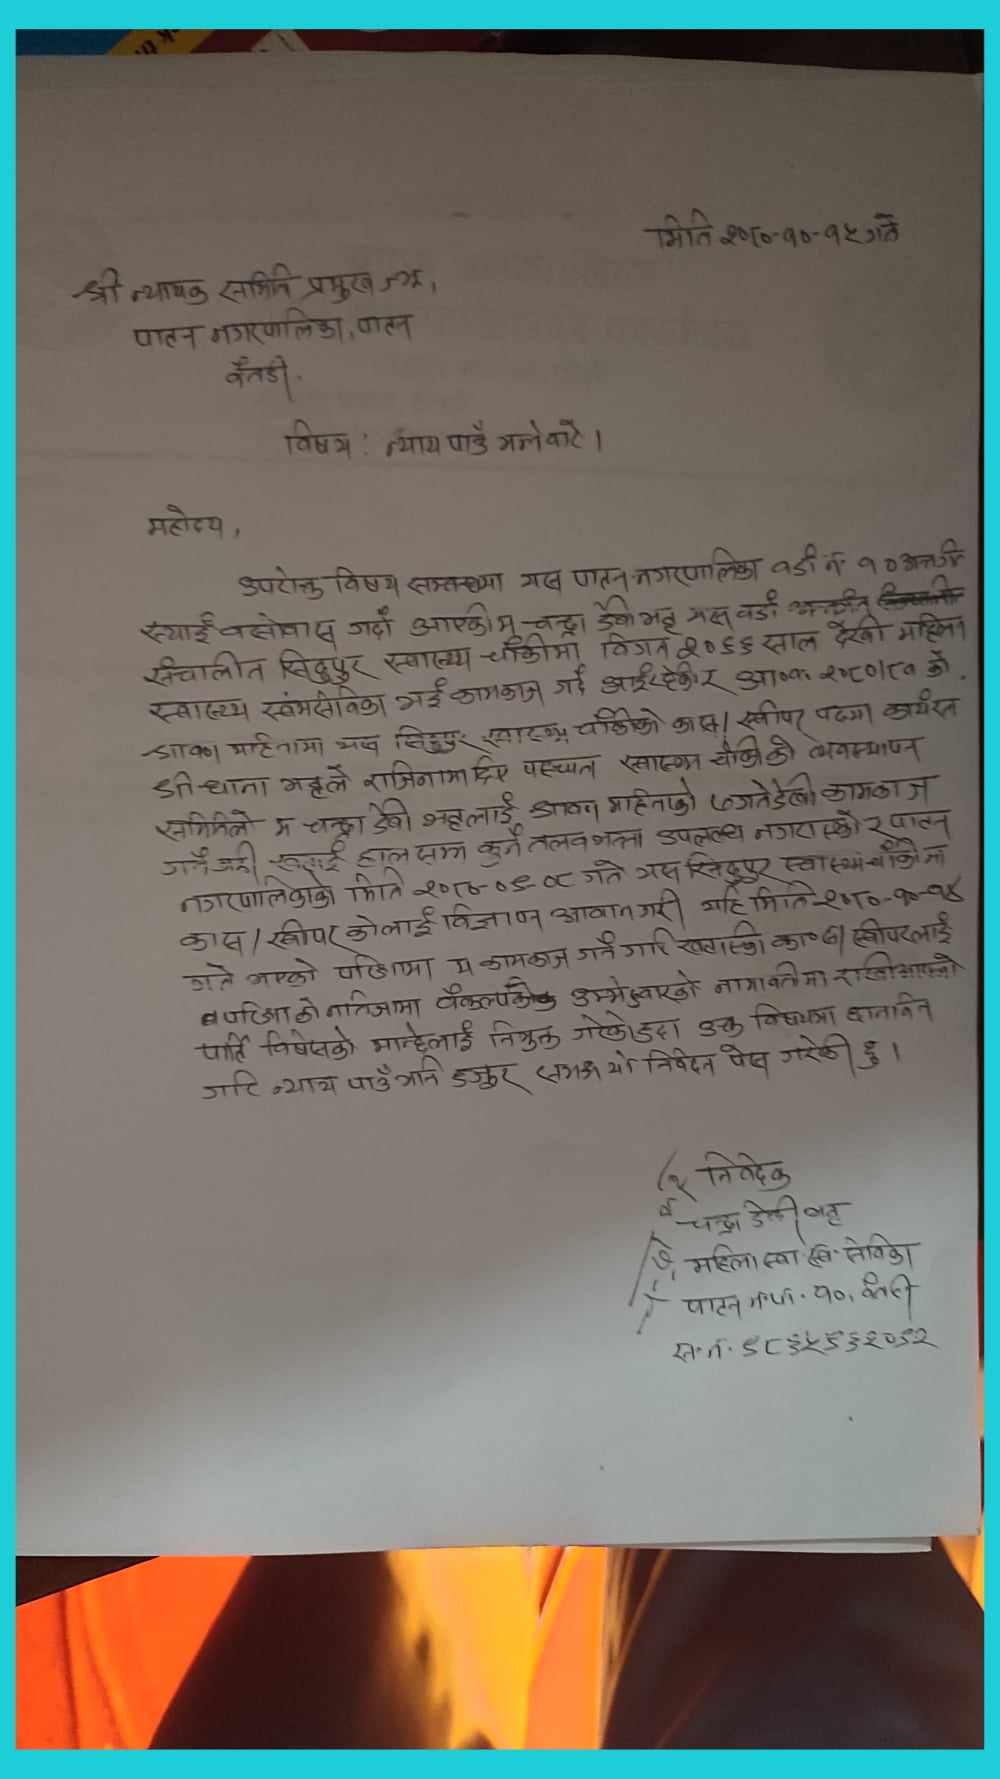 मिति २०८०-१०-१५ गते
श्री न्यायिक समिति प्रमुख ज्यू,
पाटन नगरपालिका, पाटन
बैतडी.
विषय: न्याय पाउँ भन्नेबारे ।
महोदय,
उपरोक्त विषय सम्बन्धमा यस पाटन नगरपालिका वडा नं १० अन्तर्गत
स्थाई बसोवास गर्दै आएकी म चन्द्रा देवी भट्ट यस वडा अन्तर्गत
संचालीत सिद्धपुर स्वास्थ्य चौकीमा विगत २०६६ साल देखी महिला
स्वास्थ्य स्वंमसेविका भई कामकाज गर्दै आईरहेकी र आ०व० २०८०/८१ को
श्रावण महिनामा यस सिद्धपुर स्वास्थ्य चौकीको का.स/स्वीपर पदमा कार्यरत
श्री धाना भट्टले राजिनामा दिए पश्चात स्वास्थ्य चौकीको व्यवस्थापन
समितिले म चन्द्रा देवी भट्टलाई श्रावण महिनाको ७ गतेदेखी कामकाज
गर्न हाल सम्म कुनै तलब भत्ता उपलब्ध नगराएको र पाटन
नगरपालिकाको मिति २०८०-०९-०८ गते यस सिद्धपुर स्वास्थ्य चौकीमा
का.स/स्वीपर कोलाई विज्ञापन आवान गरी यहि मिति २०८०-१०-१४
गते भएको परिक्षामा म कामकाज गर्ने गरि का०स/स्वीपरलाई
परिक्षाको नतिजामा बैकल्पीक उम्मेद्वारको नामावलीमा राखीआएको
पार्टि विषेसको मान्छेलाई नियुक्त गरेको हुदा उक्त विषयमा छानविन
गरि न्याय पाउँ भनि हजुर समक्ष यो निवेदन पेस गरेकी छु ।
निवेदक
चन्द्रा देवी भट्ट
महिला स्वा. स्वं. सेविका
पाटन न.पा. १०, बैतडी
स.नं. ९८६५६६२०९२